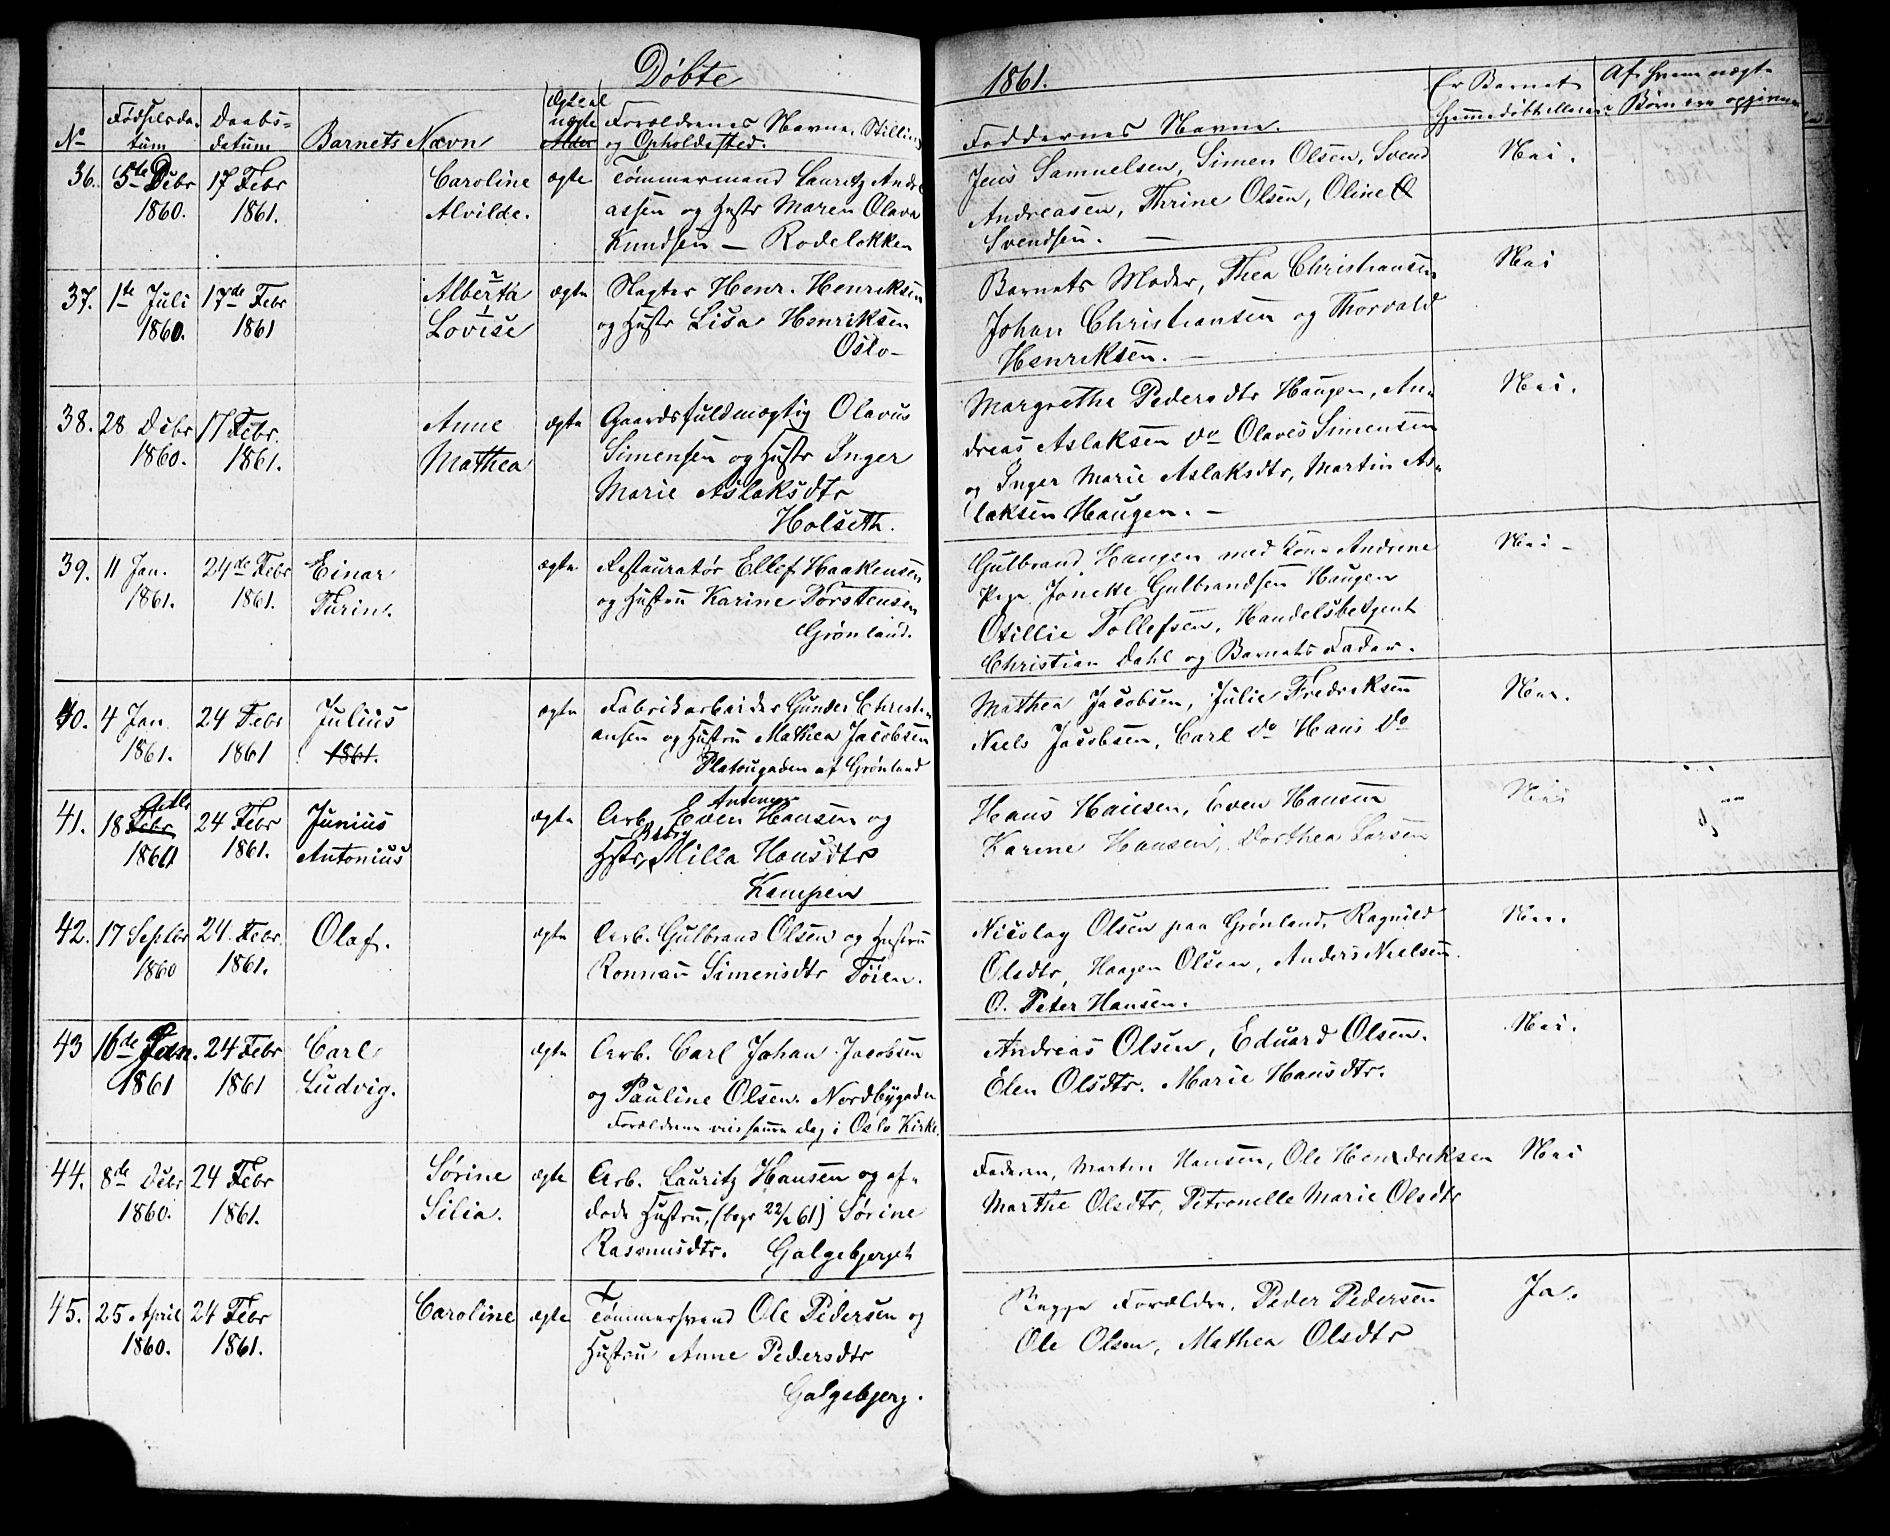 Døbte
1861.
No
Fødselsda-
tum
Daabs-
datum
Barnets Navn
Forældrenes Navne, Stilling
og Opholdssted.
Faddernes Navne.
Er Barnet
hjemmedøbt
Af hvem uægte
Børn ere opgivne
36. 5te Debr 17 Febr Caroline ægte Tømmermand Lauritz Andre
1860. 1861. Alvilde. assen og Hustr Maren Olava
Knudsen — Rodeløkken
Jens Samuelsen, Simen Olsen, Svend Nei.
Andreasen, Thrine Olsen, Oline
Svendsen. —
37. 1te Juli 17de Febr Alberta ægte Slagter Henr. Henriksen
1860. 1861 Lovise og Hustr Lisa Henriksen
Oslo—
Barnets Moder, Thea Christiansen Nei
Johan Christiansen og Thorvald
Henriksen. —
38. 28 Debr 17 Febr. Anne ægte Gaardsfuldmægtig Olavus
1860. 1861. Mathea Simensen og Hustr Inger
Marie Aslaksdtr
Holseth.
Margrethe Pedersdtr Haugen, An- Nei.
dreas Aslaksen do Olaves Simensen
og Inger Marie Aslaksdtr, Martin As-
laksen Haugen. —
39. 11 Jan. 24de Febr Einar ægte Restauratør Ellef Haakensen
1861. 1861. Turin. og Hustru Karine Torstensen
Grønland.
Gulbrand Haugen med Kone Andrine Nei —
Pige Jonette Gulbrandsen Haugen
Otillie Tollefsen, Handelsbetjent
Christian Dahl og Barnets Fader.
40. 4 Jan. 24 Febr Julius ægte Fabrikarbeider Gunder Christi-
1861. 1861 1861. ansen og Hustru Mathea Jacobsen
Platougaden af Grønland
Mathea Jacobsen, Julie Fredriksen Nei.
Niels Jacobsen, Carl do Hans do
41. 18 Febr 24 Febr Junius ægte Arb. Even Hansen og
1861. Antonius Hstr, Milla Hansdtr
Kampen
Hans Hansen, Even Hansen Nei
Karine Hansen, Dorthea Larsen
42. 17 Septbr 24 Febr. Olaf. ægte Arb. Gulbrand Olsen og Hustru
1860 1861. Ronnau Simensdtr Tøien.
Nicolay Olsen paa Grønland, Ragnild Nei.
Olsdtr, Haagen Olsen, Anders Nielsen.
O. Peter Hansen.
43 16de Jan. 24 Febr Carl ægte Arb. Carl Johan Jacobsen
1861 1861 Ludvig. og Pauline Olsen. Nordbygaden
Forældrene viet samme dag i Oslo Kirke.
Andreas Olsen, Eduard Olsen. Nei.
Elen Olsdtr. Marie Hansdtr.
44. 8de Debr 24 Febr Sørine ægte Arb. Lauritz Hansen og af-
1860. 1861. Silia. døde Hustru, (begr 22/2 61) Sørine
Rasmusdtr. Galgebjerget
Faderen, Martin Hansen, Ole Hendreksen Nei
Marthe Olsdtr, Petronelle Marie Olsdtr
45. 25 April 24 Febr Caroline ægte Tømmersvend Ole Pedersen og
1860. 1861. Hustru Anne Pedersdtr
Galgebjerg.
Begge Forældre, Peder Pedersen Ja.
Ole Olsen, Mathea Olsdtr